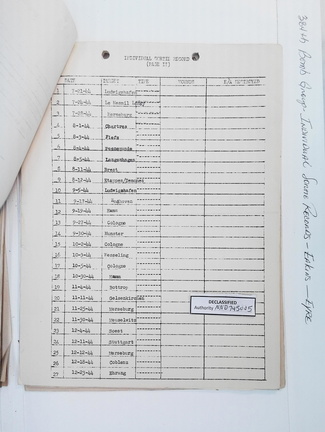 INDIVIDUAL SORTIE RECORD
(PAGE II)
DATE TARGET TIME REMARKS
1 7-21-44 Ludwigshafen
2 7-24-44
3 7-28-44 Merseburg
4 8-1-44 Chartres
5 8-3-44
6 8-4-44 Peenemunde
7 8-5-44 Langenhagen
8 8-11-44 Brest
9 8-12-44
10 9-5-44 Ludwigshafen
11 9-17-44
12 9-19-44 Hamm
13 9-27-44 Cologne
14 9-30-44 Munster
15 10-14-44 Cologne
16 Wesseling
17 Cologne
18 10-30-44 Hamm
19 11-4-44 Bottrop
20 11-11-44 Gelsenkirchen
21 11-21-44 Merseburg
22 11-30-44
23 12-4-44 Soest
24 12-11-44 Stuttgart
25 12-12-44 Merseburg
26 12-18-44 Coblenz
27 12-23-44 Ehrang
DECLASSIFIED
Authority NND 745005
384th Bomb Group - Individual Sortie Records - Enkins - Eyre